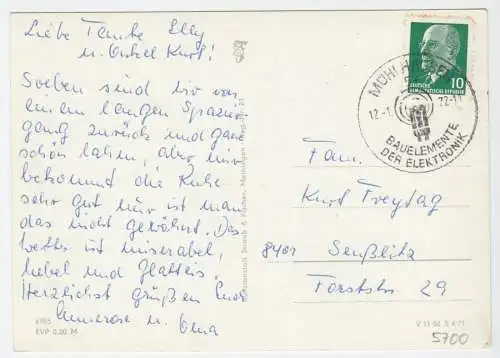 Liebe Tante Elly
u. Onkel Kurt!
Soeben sind wir von
einem langen Spazier
gang zurück und ganz
schön lahm, aber mir
bekommt die Ruhe
sehr gut nur ist man
das nicht gewöhnt. Das
Wetter ist miserabel,
Nebel und Glatteis.
Herzlichst grüßen Euch
Annerose u. Oma
6985
EVP 0,20 M
DEUTSCHE
DEMOKRATISCHE REPUBLIK
10
MÜHLHAUSEN
12.-1 72.-17
BAUELEMENTE
DER ELEKTRONIK
Fam.
Kurt Freytag
8401 Seußlitz
Forststr. 29
5700